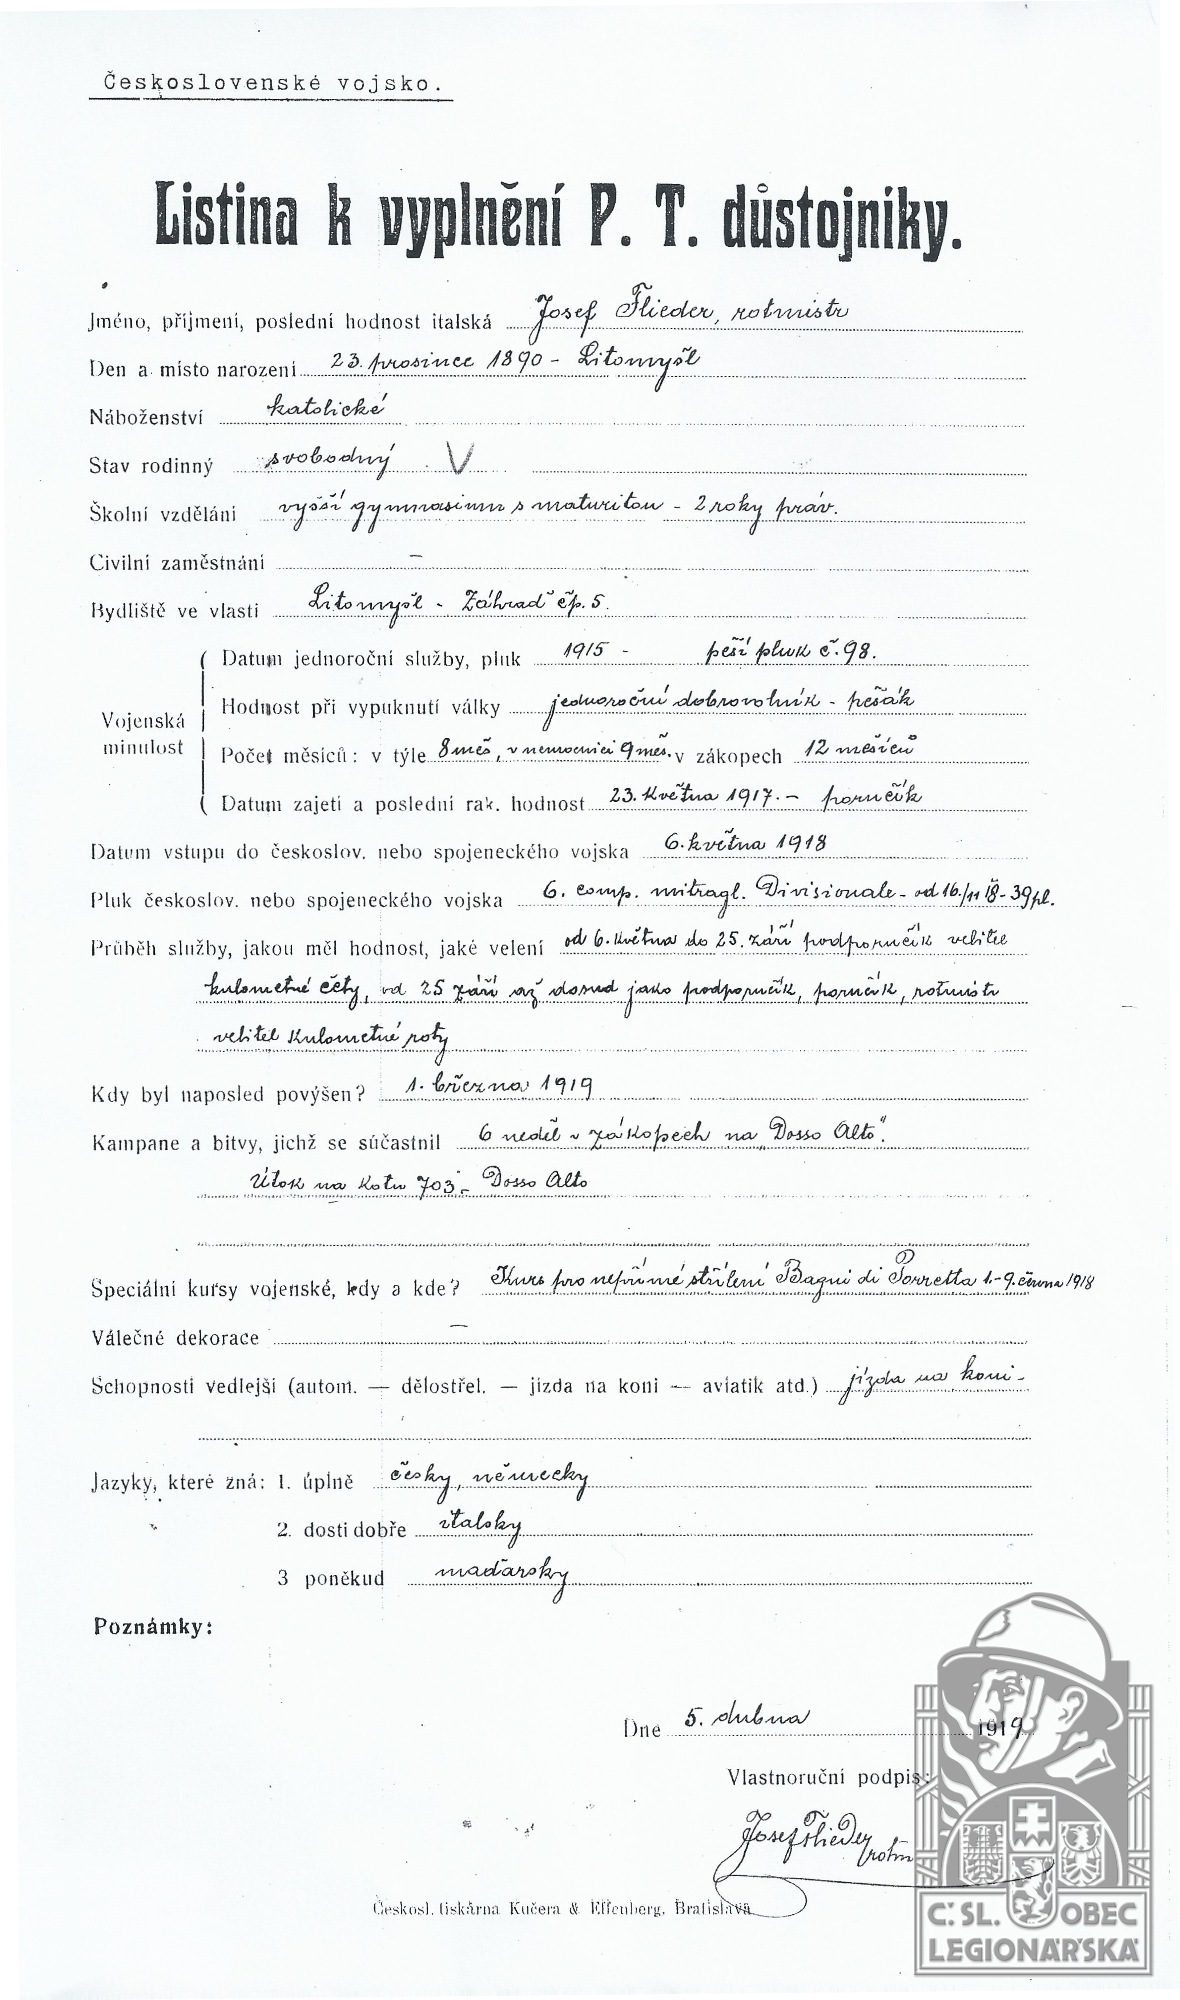 Československé vojsko.
Listina k vyplnění P. T. důstojníky.
Jméno, příjmení, poslední hodnost italská Josef Flieder, rotmistr
Den a místo narození 23. prosince 1890 - Litomyšl
Náboženství katolické
Stav rodinný svobodný V
Školní vzdělání vyšší gymnasium s maturitou - 2 roky práv.
Civilní zaměstnání –
Bydliště ve vlasti Litomyšl - Záhraď čp. 5.
Vojenská minulost
Datum jednoroční služby, pluk 1915 - pěší pluk č. 98.
Hodnost při vypuknutí války jednoroční dobrovolník - pěšák
Počet měsíců: v týle 8 měs, v nemocnici 9 měs. v zákopech 12 měsíců
Datum zajetí a poslední rak. hodnost 23. května 1917. - poručík
Datum vstupu do českoslov. nebo spojeneckého vojska 6. května 1918
Pluk českoslov. nebo spojeneckého vojska 6. comp. mitragl. Divisionale - od 16./11 18 - 39 pl.
Průběh služby, jakou měl hodnost, jaké velení od 6. května do 25. září podporučík velitel
kulometné čety, od 25 září až dosud jako podporučík, poručík, rotmistr
velitel kulometné roty
Kdy byl naposled povýšen? 1. března 1919
Kampane a bitvy, jichž se súčastnil 6 neděl v zákopech na „Dosso Alto".
Útok na kotu 703 - Dosso Alto
Speciální kursy vojenské, kdy a kde? Kurs pro nepřímé střílení Bagni di Porretta 1.-9. června 1918
Válečné dekorace –
Schopnosti vedlejší (autom. — dělostřel. — jízda na koni — aviatik atd.) jízda na koni -
Jazyky, které zná: 1. úplně česky, německy
2. dosti dobře italsky
3 poněkud maďarsky
Poznámky:
Dne 5. dubna 1919
Vlastnoruční podpis:
Josef Flieder
rotm
Českosl. tiskárna Kučera & Effenberg, Bratislava
Č. SL. OBEC
LEGIONÁŘSKÁ